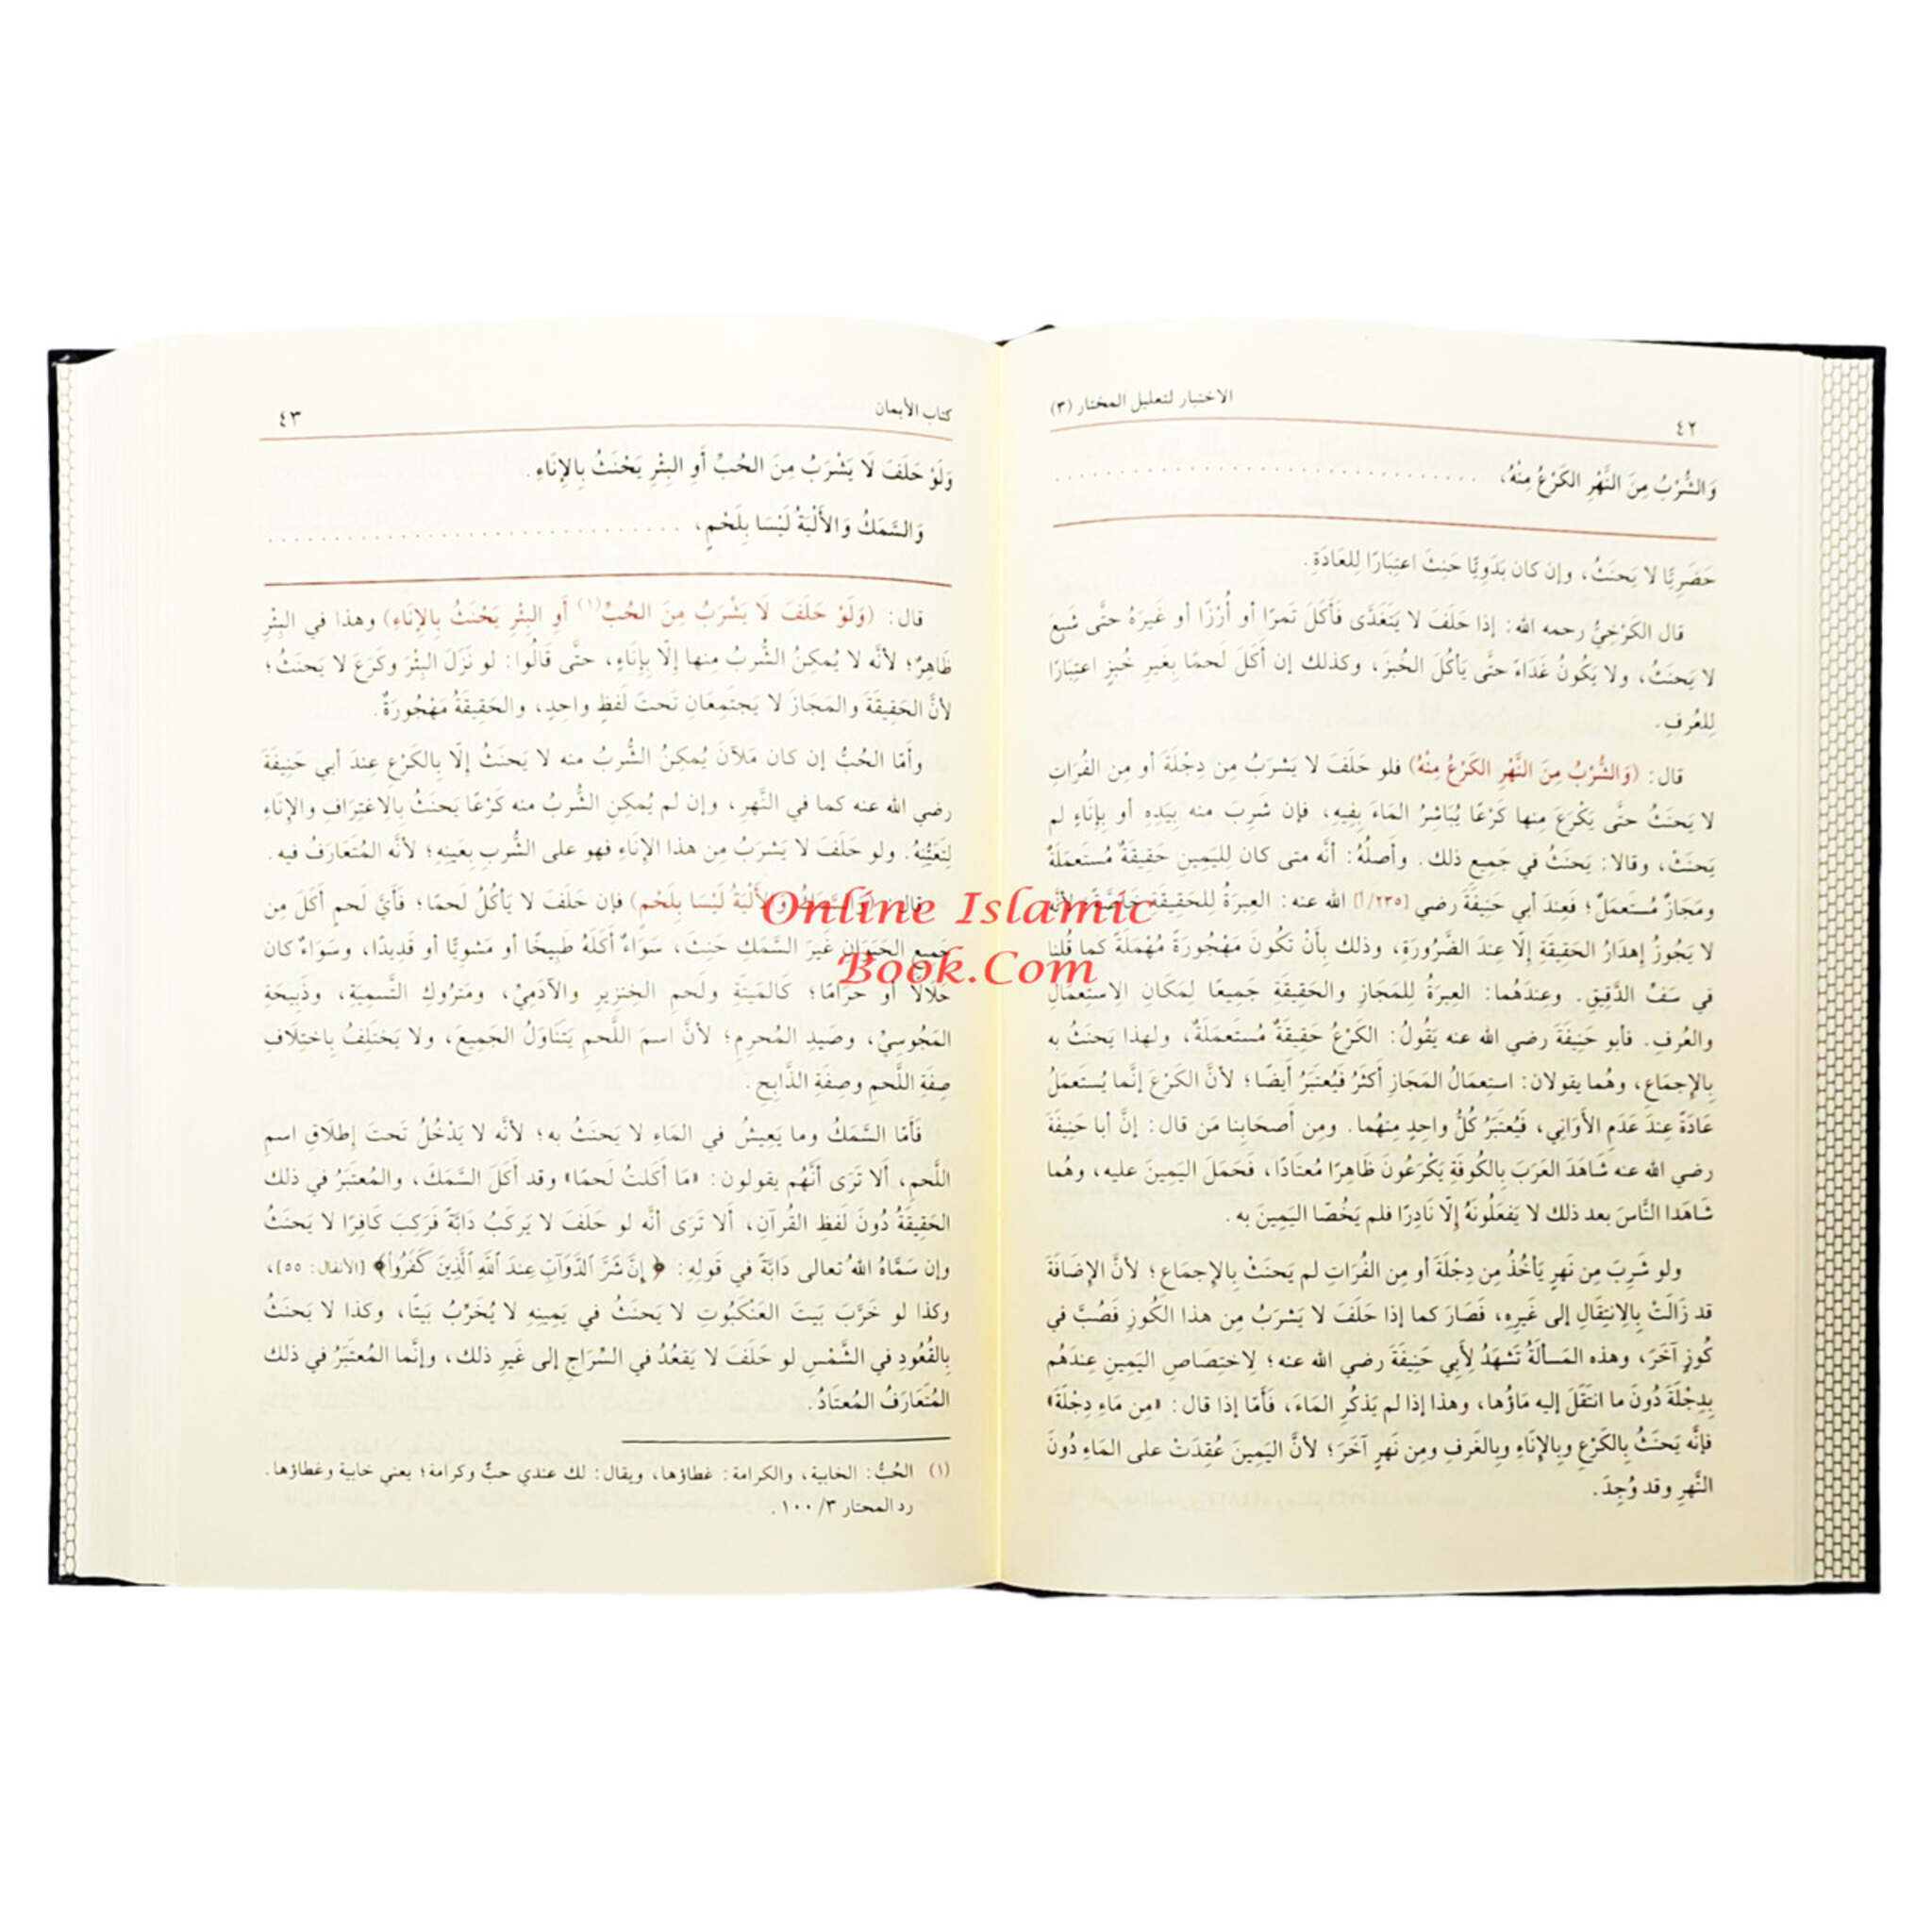 ٤٢
الاختيار لتعليل المختار (٣)
وَالشُّرْبُ مِنَ النَّهْرِ الكَرْعُ مِنْهُ، ........................................
حَضَرِيًّا لا يَحنَثُ، وإن كان بَدَوِيًّا حَنِثَ اعتِبَارًا لِلعَادَةِ.
قال الكَرْخِيُّ رحمه الله: إذا حَلَفَ لا يَتَغَدَّى فَأَكَلَ تَمرًا أو أُرْزًا أو غَيرَهُ حتَّى شَبِعَ
لا يَحنَثُ، ولا يَكُونُ غَدَاءً حتَّى يَأكُلَ الخُبزَ، وكذلك إن أكَلَ لَحمًا بِغَيرِ خُبزٍ اعتِبَارًا
لِلعُرفِ.
قال: (وَالشُّرْبُ مِنَ النَّهْرِ الكَرْعُ مِنْهُ) فلو حَلَفَ لا يَشرَبُ مِن دِجْلَةَ أو مِن الفُرَاتِ
لا يَحنَثُ حتَّى يَكْرَعَ مِنها كَرْعًا يُبَاشِرُ المَاءَ بِفِيهِ، فإن شَرِبَ منه بِيَدِهِ أو بِإنَاءٍ لم
يَحنَثْ، وقالا: يَحنَثُ في جَمِيعِ ذلك. وأصلُهُ: أنَّه متى كان لِليَمِينِ حَقِيقَةٌ مُستَعمَلَةٌ
ومَجَازٌ مُستَعمَلٌ؛ فَعِندَ أبي حَنِيفَةَ رضي [٢٣٥/أ] الله عنه: العِبرَةُ لِلحَقِيقَةِ خَاصَّةً؛ لأنَّه
لا يَجُوزُ إهدَارُ الحَقِيقَةِ إلّا عِندَ الضَّرُورَةِ، وذلك بِأَنْ تَكُونَ مَهْجُورَةً مُهْمَلَةً كما قُلنا
في سَفِّ الدَّقِيقِ. وعِندَهُما: العِبرَةُ لِلمَجَازِ والحَقِيقَةِ جَمِيعًا لِمَكَانِ الاستِعمَالِ
والعُرفِ. فأبو حَنِيفَةَ رضي الله عنه يَقُولُ: الكَرْعُ حَقِيقَةٌ مُستَعمَلَةٌ، ولهذا يَحنَثُ به
بِالإجمَاعِ، وهُما يقولان: استِعمَالُ المَجَازِ أكثَرُ فَيُعتَبَرُ أيضًا؛ لأنَّ الكَرْعَ إنَّما يُستَعمَلُ
عَادَةً عِندَ عَدَمِ الأَوَانِي، فَيُعتَبَرُ كُلُّ واحِدٍ مِنهُما. ومِن أصحَابِنا مَن قال: إنَّ أبا حَنِيفَةَ
رضي الله عنه شَاهَدَ العَرَبَ بِالكُوفَةِ يَكْرَعُونَ ظَاهِرًا مُعتَادًا، فَحَمَلَ اليَمِينَ عليه، وهُما
شَاهَدَا النَّاسَ بعد ذلك لا يَفعَلُونَهُ إلّا نَادِرًا فلم يَخُصَّا اليَمِينَ به.
ولو شَرِبَ مِن نَهرٍ يَأخُذُ مِن دِجْلَةَ أو مِن الفُرَاتِ لم يَحنَثْ بِالإجمَاعِ؛ لأنَّ الإضَافَةَ
قد زَالَتْ بِالِانتِقَالِ إلى غَيرِهِ، فَصَارَ كما إذا حَلَفَ لا يَشرَبُ مِن هذا الكُوزِ فَصُبَّ في
كُوزٍ آخَرَ، وهذه المَسألَةُ تَشهَدُ لِأَبِي حَنِيفَةَ رضي الله عنه؛ لِاختِصَاصِ اليَمِينِ عِندَهُم
بِدِجْلَةَ دُونَ ما انتَقَلَ إليه مَاؤُها، وهذا إذا لم يَذكُرِ المَاءَ، فَأمّا إذا قال: «مِن مَاءِ دِجْلَةَ»
فإنَّه يَحنَثُ بِالكَرْعِ وبِالإنَاءِ وبِالغَرفِ ومِن نَهرٍ آخَرَ؛ لأنَّ اليَمِينَ عُقِدَتْ على المَاءِ دُونَ
النَّهرِ وقد وُجِدَ.
كتاب الأيمان
٤٣
وَلَوْ حَلَفَ لَا يَشْرَبُ مِنَ الحُبِّ أَوِ البِئْرِ يَحْنَثُ بِالإِنَاءِ.
وَالسَّمَكُ وَالأَلْيَةُ لَيْسَا بِلَحْمٍ، ........................................
قال: (وَلَوْ حَلَفَ لَا يَشْرَبُ مِنَ الحُبِّ(١) أَوِ البِئْرِ يَحْنَثُ بِالإِنَاءِ) وهذا في البِئْرِ
ظَاهِرٌ؛ لأنَّه لا يُمكِنُ الشُّربُ مِنها إلّا بِإنَاءٍ، حتَّى قَالُوا: لو نَزَلَ البِئْرَ وكَرَعَ لا يَحنَثُ؛
لأنَّ الحَقِيقَةَ والمَجَازَ لا يَجتَمِعَانِ تَحتَ لَفظٍ واحِدٍ، والحَقِيقَةُ مَهْجُورَةٌ.
وأمّا الحُبُّ إن كان مَلآنَ يُمكِنُ الشُّربُ منه لا يَحنَثُ إلّا بِالكَرْعِ عِندَ أبي حَنِيفَةَ
رضي الله عنه كما في النَّهرِ، وإن لم يُمكِنِ الشُّربُ منه كَرْعًا يَحنَثُ بِالِاغتِرَافِ والإنَاءِ
لِتَعَيُّنِهُ. ولو حَلَفَ لا يَشرَبُ مِن هذا الإنَاءِ فهو على الشُّربِ بِعَينِهِ؛ لأنَّه المُتَعَارَفُ فيه.
قال: (وَالسَّمَكُ وَالأَلْيَةُ لَيْسَا بِلَحْمٍ) فإن حَلَفَ لا يَأكُلُ لَحمًا؛ فَأَيَّ لَحمٍ أكَلَ مِن
جَمِيعِ الحَيَوَانِ غَيرَ السَّمَكِ حَنِثَ، سَوَاءٌ أكَلَهُ طَبِيخًا أو مَشوِيًّا أو قَدِيدًا، وسَوَاءٌ كان
حَلَالًا أو حَرَامًا؛ كَالمَيتَةِ ولَحمِ الخِنزِيرِ والآدَمِيِّ، ومَترُوكِ التَّسمِيَةِ، وذَبِيحَةِ
المَجُوسِيِّ، وصَيدِ المُحرِمِ؛ لأنَّ اسمَ اللَّحمِ يَتَنَاوَلُ الجَمِيعَ، ولا يَختَلِفُ بِاختِلَافِ
صِفَةِ اللَّحمِ وصِفَةِ الذَّابِحِ.
فَأمّا السَّمَكُ وما يَعِيشُ في المَاءِ لا يَحنَثُ به؛ لأنَّه لا يَدْخُلُ تَحتَ إطلَاقِ اسمِ
اللَّحمِ، ألا تَرَى أنَّهُم يقولون: «مَا أَكَلتُ لَحمًا» وقد أكَلَ السَّمَكَ، والمُعتَبَرُ في ذلك
الحَقِيقَةُ دُونَ لَفظِ القُرآنِ، ألا تَرَى أنَّه لو حَلَفَ لا يَركَبُ دَابَّةً فَرَكِبَ كَافِرًا لا يَحنَثُ
وإن سَمَّاهُ اللهُ تعالى دَابَّةً في قَولِهِ: ﴿إِنَّ شَرَّ ٱلدَّوَآبِّ عِندَ ٱللَّهِ ٱلَّذِينَ كَفَرُوا﴾ [الأنفال: ٥٥]،
وكذا لو خَرَّبَ بَيتَ العَنْكَبُوتِ لا يَحنَثُ في يَمِينِهِ لا يُخَرِّبُ بَيتًا، وكذا لا يَحنَثُ
بِالقُعُودِ في الشَّمْسِ لو حَلَفَ لا يَقعُدُ في السِّرَاجِ إلى غَيرِ ذلك، وإنَّما المُعتَبَرُ في ذلك
المُتَعَارَفُ المُعتَادُ.
(١) الحُبُّ: الخابية، والكرامة: غطاؤها، ويقال: لك عندي حبٌّ وكرامة؛ يعني خابية وغطاؤها.
رد المحتار ٣/ ١٠٠.
Online Islamic
Book.Com